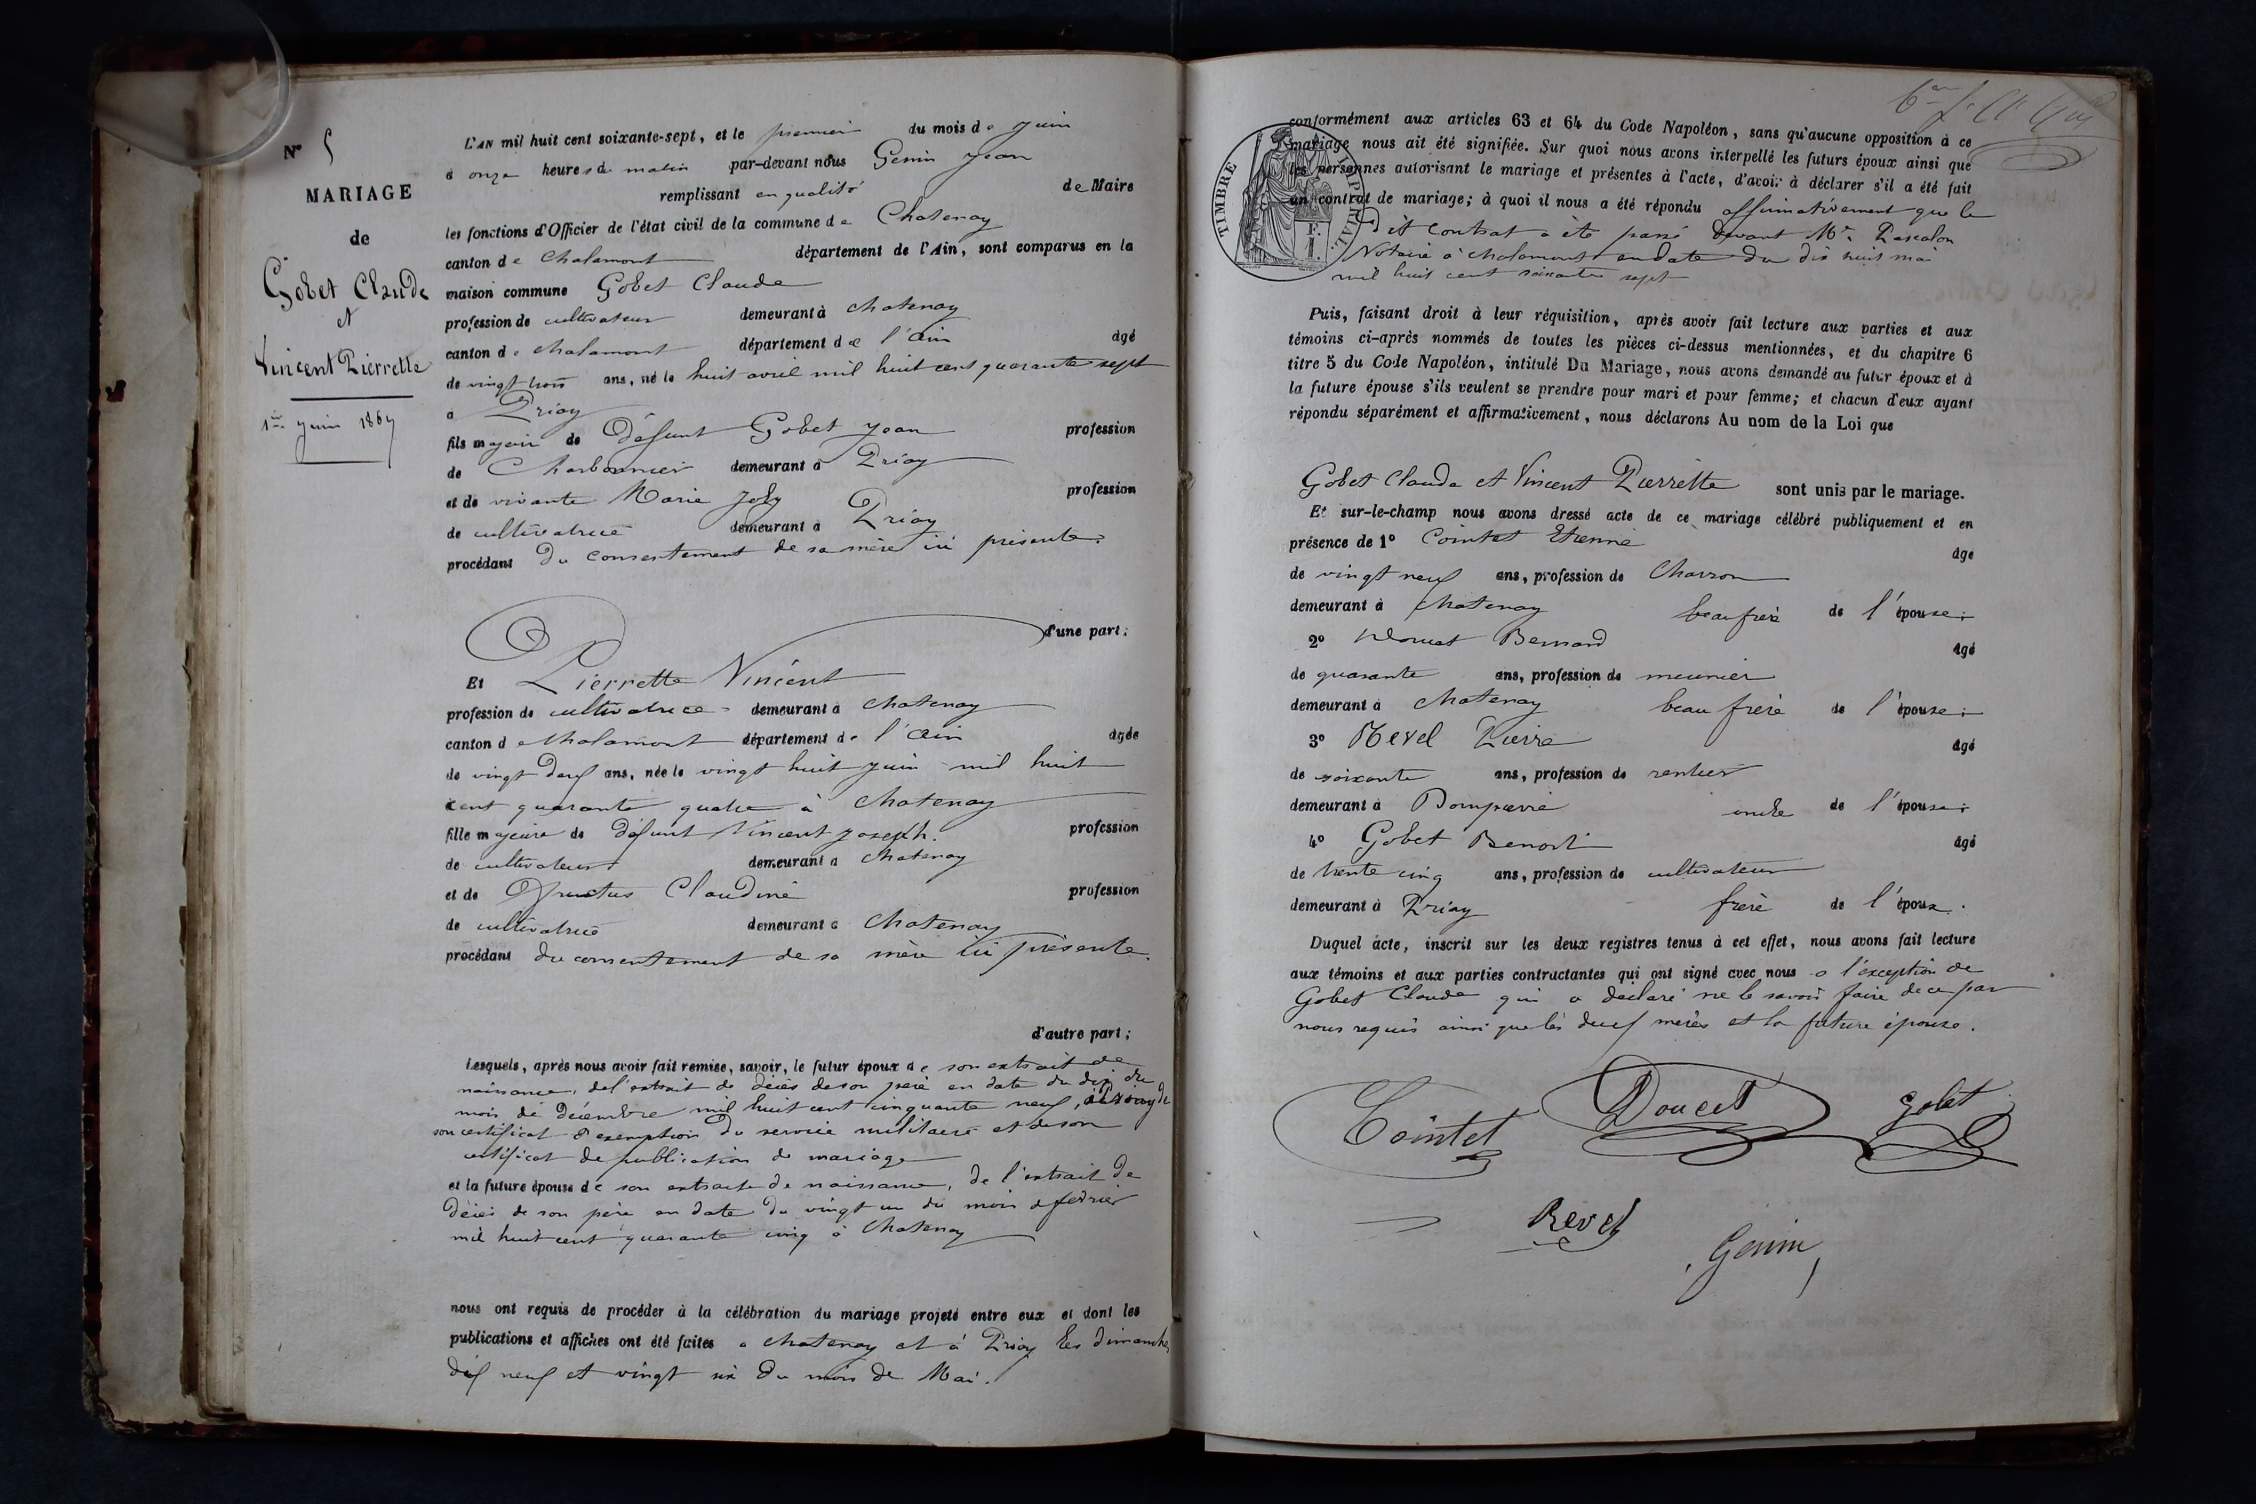 N° 5
MARIAGE
de
Gobet Claude
et
Vincent Pierrette
1er juin 1867
L'AN mil huit cent soixante-sept, et le premier du mois de juin
à onze heures du matin par-devant nous Genin Jean
remplissant en qualité de Maire
les fonctions d'Officier de l'état civil de la commune de Chatenay
canton de Chalamont département de l'Ain, sont comparus en la
maison commune Gobet Claude
profession de cultivateur demeurant à Chatenay
canton de Chalamont département de l'Ain âgé
de vingt trois ans, né le huit avril mil huit cent quarante sept
à Priay
fils majeur de Défunt Gobet Jean profession
de Charbonnier demeurant à Priay
et de vivante Marie Joly profession
de cultivatrice demeurant à Priay
procédant du consentement de sa mère ici présente.
d'une part;
Et Pierrette Vincent
profession de cultivatrice demeurant à Chatenay
canton de Chalamont département de l'Ain âgée
de vingt deux ans, née le vingt huit juin mil huit
cent quarante quatre à Chatenay
fille majeure de défunt Vincent Joseph. profession
de cultivateur demeurant à Chatenay
et de Claudine profession
de cultivatrice demeurant à Chatenay
procédant du consentement de sa mère ici présente.
d'autre part;
Lesquels, après nous avoir fait remise, savoir, le futur époux de son extrait de
naissance, de l'extrait de décès de son père en date du dix du
mois de décembre mil huit cent cinquante neuf, à Priay de
son certificat d'exemption du service militaire et de son
certificat de publication de mariage
et la future épouse de son extrait de naissance, de l'extrait de
décès de son père en date du vingt un du mois de février
mil huit cent quarante cinq à Chatenay
nous ont requis de procéder à la célébration du mariage projeté entre eux et dont les
publications et affiches ont été faites à Chatenay et à Priay les dimanches
dix neuf et vingt six du mois de Mai.
TIMBRE IMPÉRIAL.
conformément aux articles 63 et 64 du Code Napoléon, sans qu'aucune opposition à ce
mariage nous ait été signifiée. Sur quoi nous avons interpellé les futurs époux ainsi que
les personnes autorisant le mariage et présentes à l'acte, d'avoir à déclarer s'il a été fait
un contrat de mariage; à quoi il nous a été répondu affirmativement que le
dit contrat a été passé devant Me Rascalon
Notaire à Chalamont en date du dix huit mai
mil huit cent soixante sept
Puis, faisant droit à leur réquisition, après avoir fait lecture aux parties et aux
témoins ci-après nommés de toutes les pièces ci-dessus mentionnées, et du chapitre 6
titre 5 du Code Napoléon, intitulé Du Mariage, nous avons demandé au futur époux et à
la future épouse s'ils veulent se prendre pour mari et pour femme; et chacun d'eux ayant
répondu séparément et affirmativement, nous déclarons Au nom de la Loi que
Gobet Claude et Vincent Pierrette sont unis par le mariage.
Et sur-le-champ nous avons dressé acte de ce mariage célébré publiquement et en
présence de 1° Cointet Etienne âge
de vingt neuf ans, profession de Charron
demeurant à Chatenay beau frère de l'épouse;
2° Doucet Bernard âgé
de quarante ans, profession de meunier
demeurant à Chatenay beau frère de l'épouse;
3° Revel Pierre âgé
de soixante ans, profession de rentier
demeurant à Dompierre oncle de l'épouse;
4° Gobet Benoit âgé
de trente cinq ans, profession de cultivateur
demeurant à Priay frère de l'époux.
Duquel acte, inscrit sur les deux registres tenus à cet effet, nous avons fait lecture
aux témoins et aux parties contractantes qui ont signé avec nous à l'exception de
Gobet Claude qui a déclaré ne le savoir faire de ce par
nous requis ainsi que les deux mères et la future épouse.
Cointet Doucet Gobet
Revel
Genin